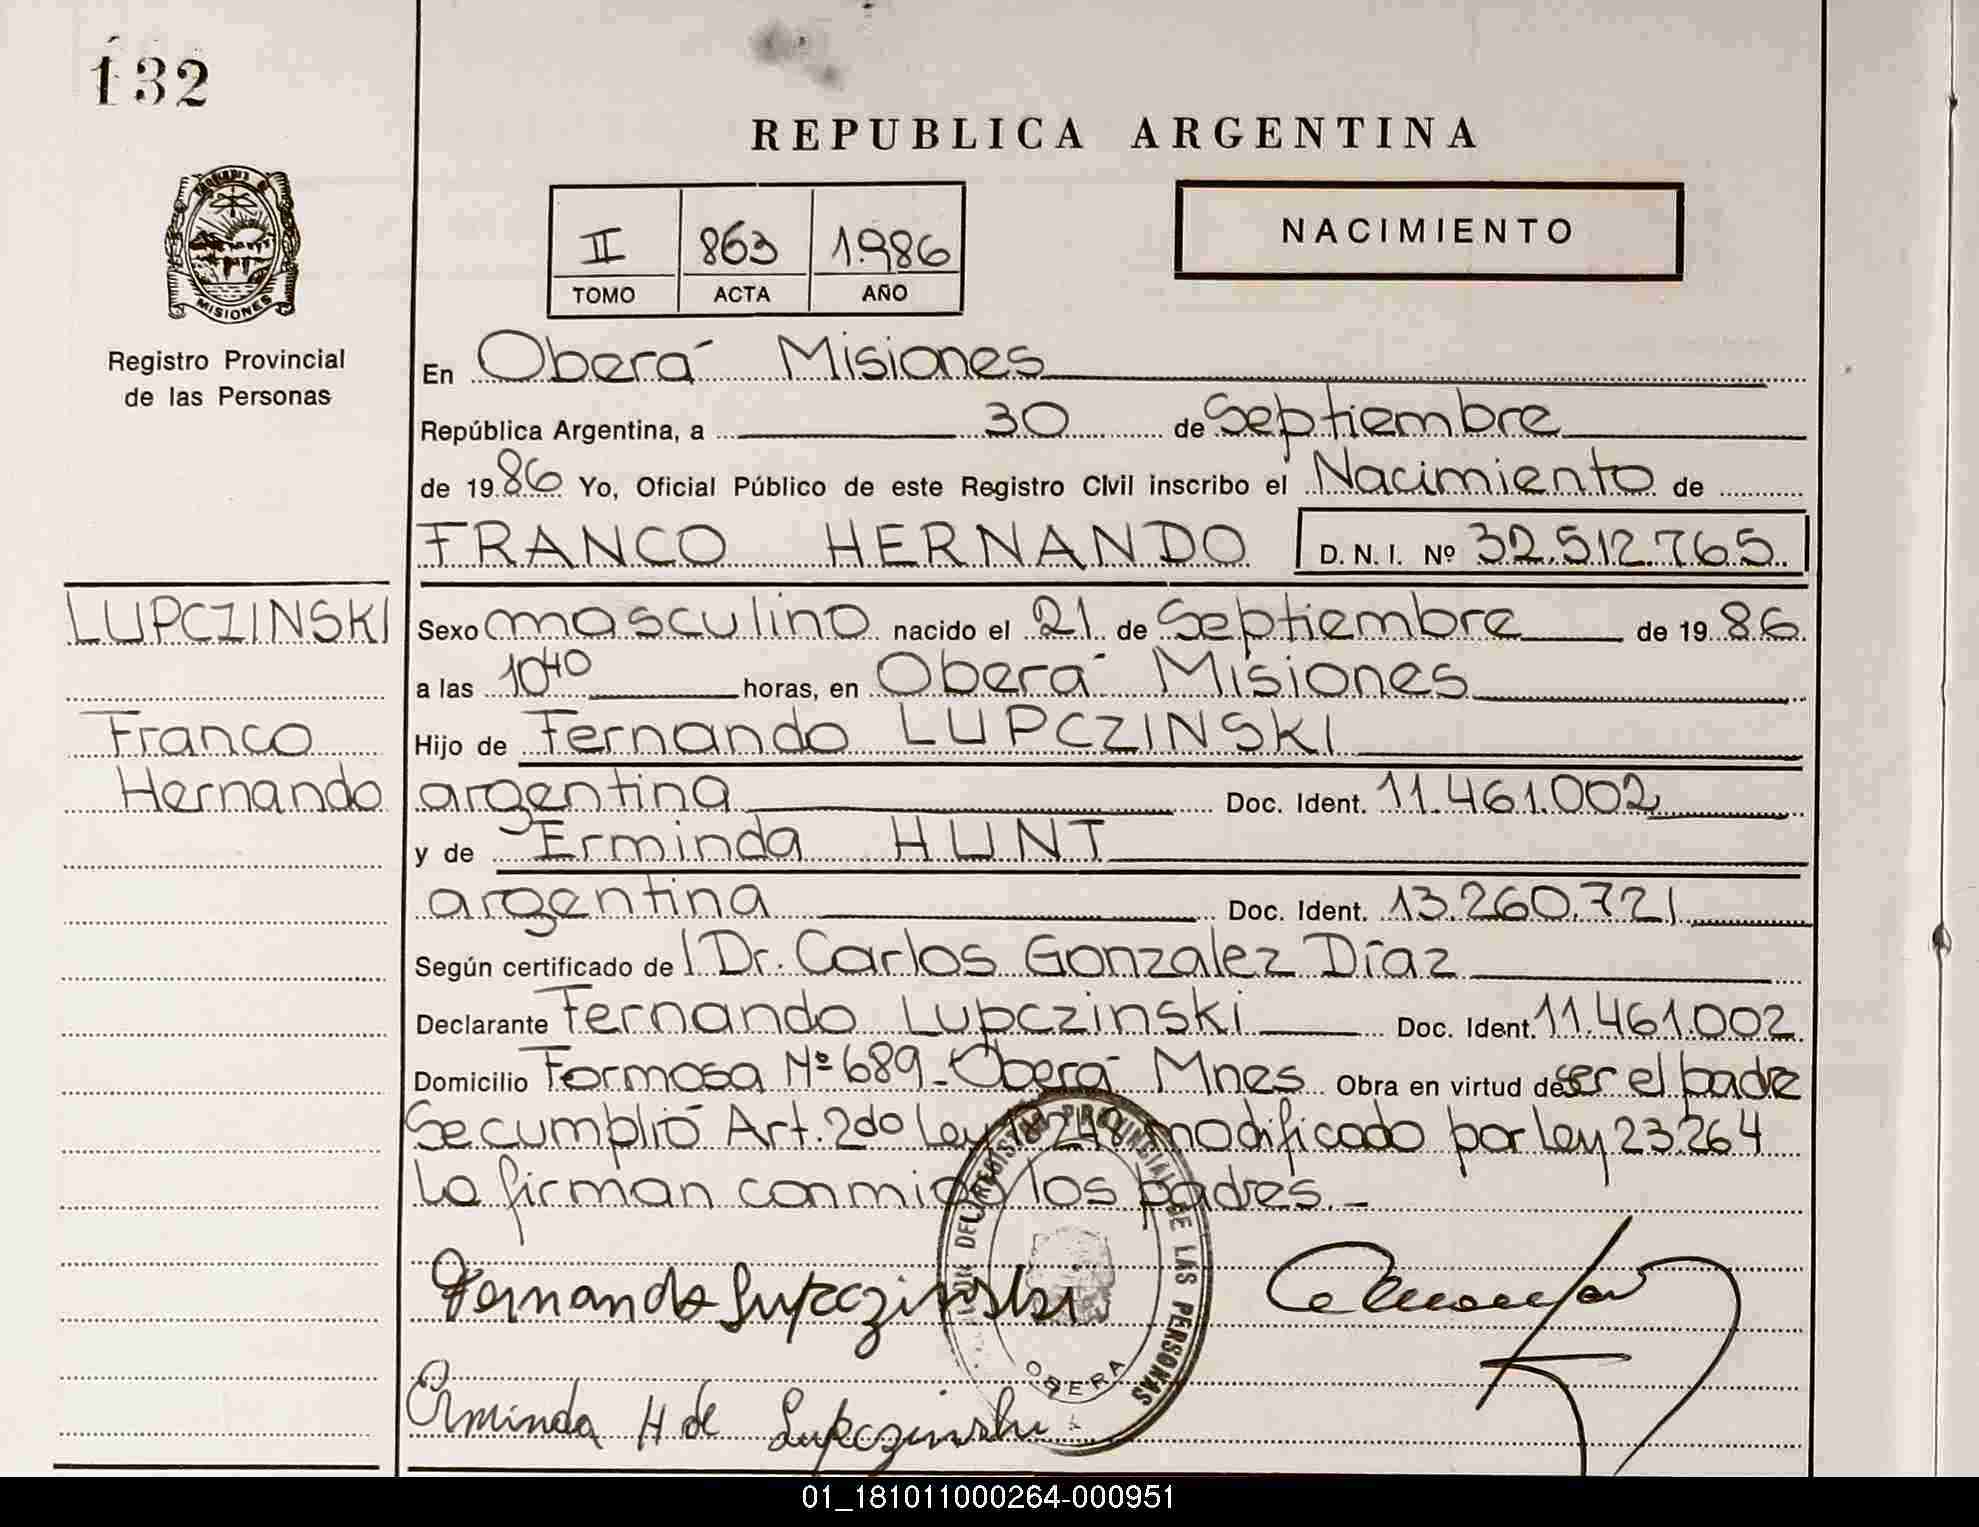 132
REPUBLICA ARGENTINA
II 863 1.986
TOMO ACTA AÑO
NACIMIENTO
MISIONES
Registro Provincial
de las Personas
En Oberá Misiones
República Argentina, a 30 de Septiembre
de 1986 Yo, Oficial Público de este Registro Civil inscribo el Nacimiento de
FRANCO HERNANDO D.N.I. Nº 32.512.765
LUPCZINSKI
Franco
Hernando
Sexo masculino nacido el 21 de Septiembre de 1986
a las 10⁴⁰ horas, en Oberá Misiones
Hijo de Fernando LUPCZINSKI
argentina Doc. Ident. 11.461.002
y de Erminda HUNT
argentina Doc. Ident. 13.260.721
Según certificado del Dr. Carlos Gonzalez Díaz
Declarante Fernando Lupczinski Doc. Ident. 11.461.002
Domicilio Formosa Nº 689 - Oberá Mnes Obra en virtud de ser el padre
Se cumplió Art. 2do Ley 18248 modificado por ley 23.264
Lo firman conmigo los padres.-
Fernando Lupczinski
Erminda H de Lupczinski
DEL REGISTRO PROVINCIAL DE LAS PERSONAS
OBERA
01_181011000264-000951